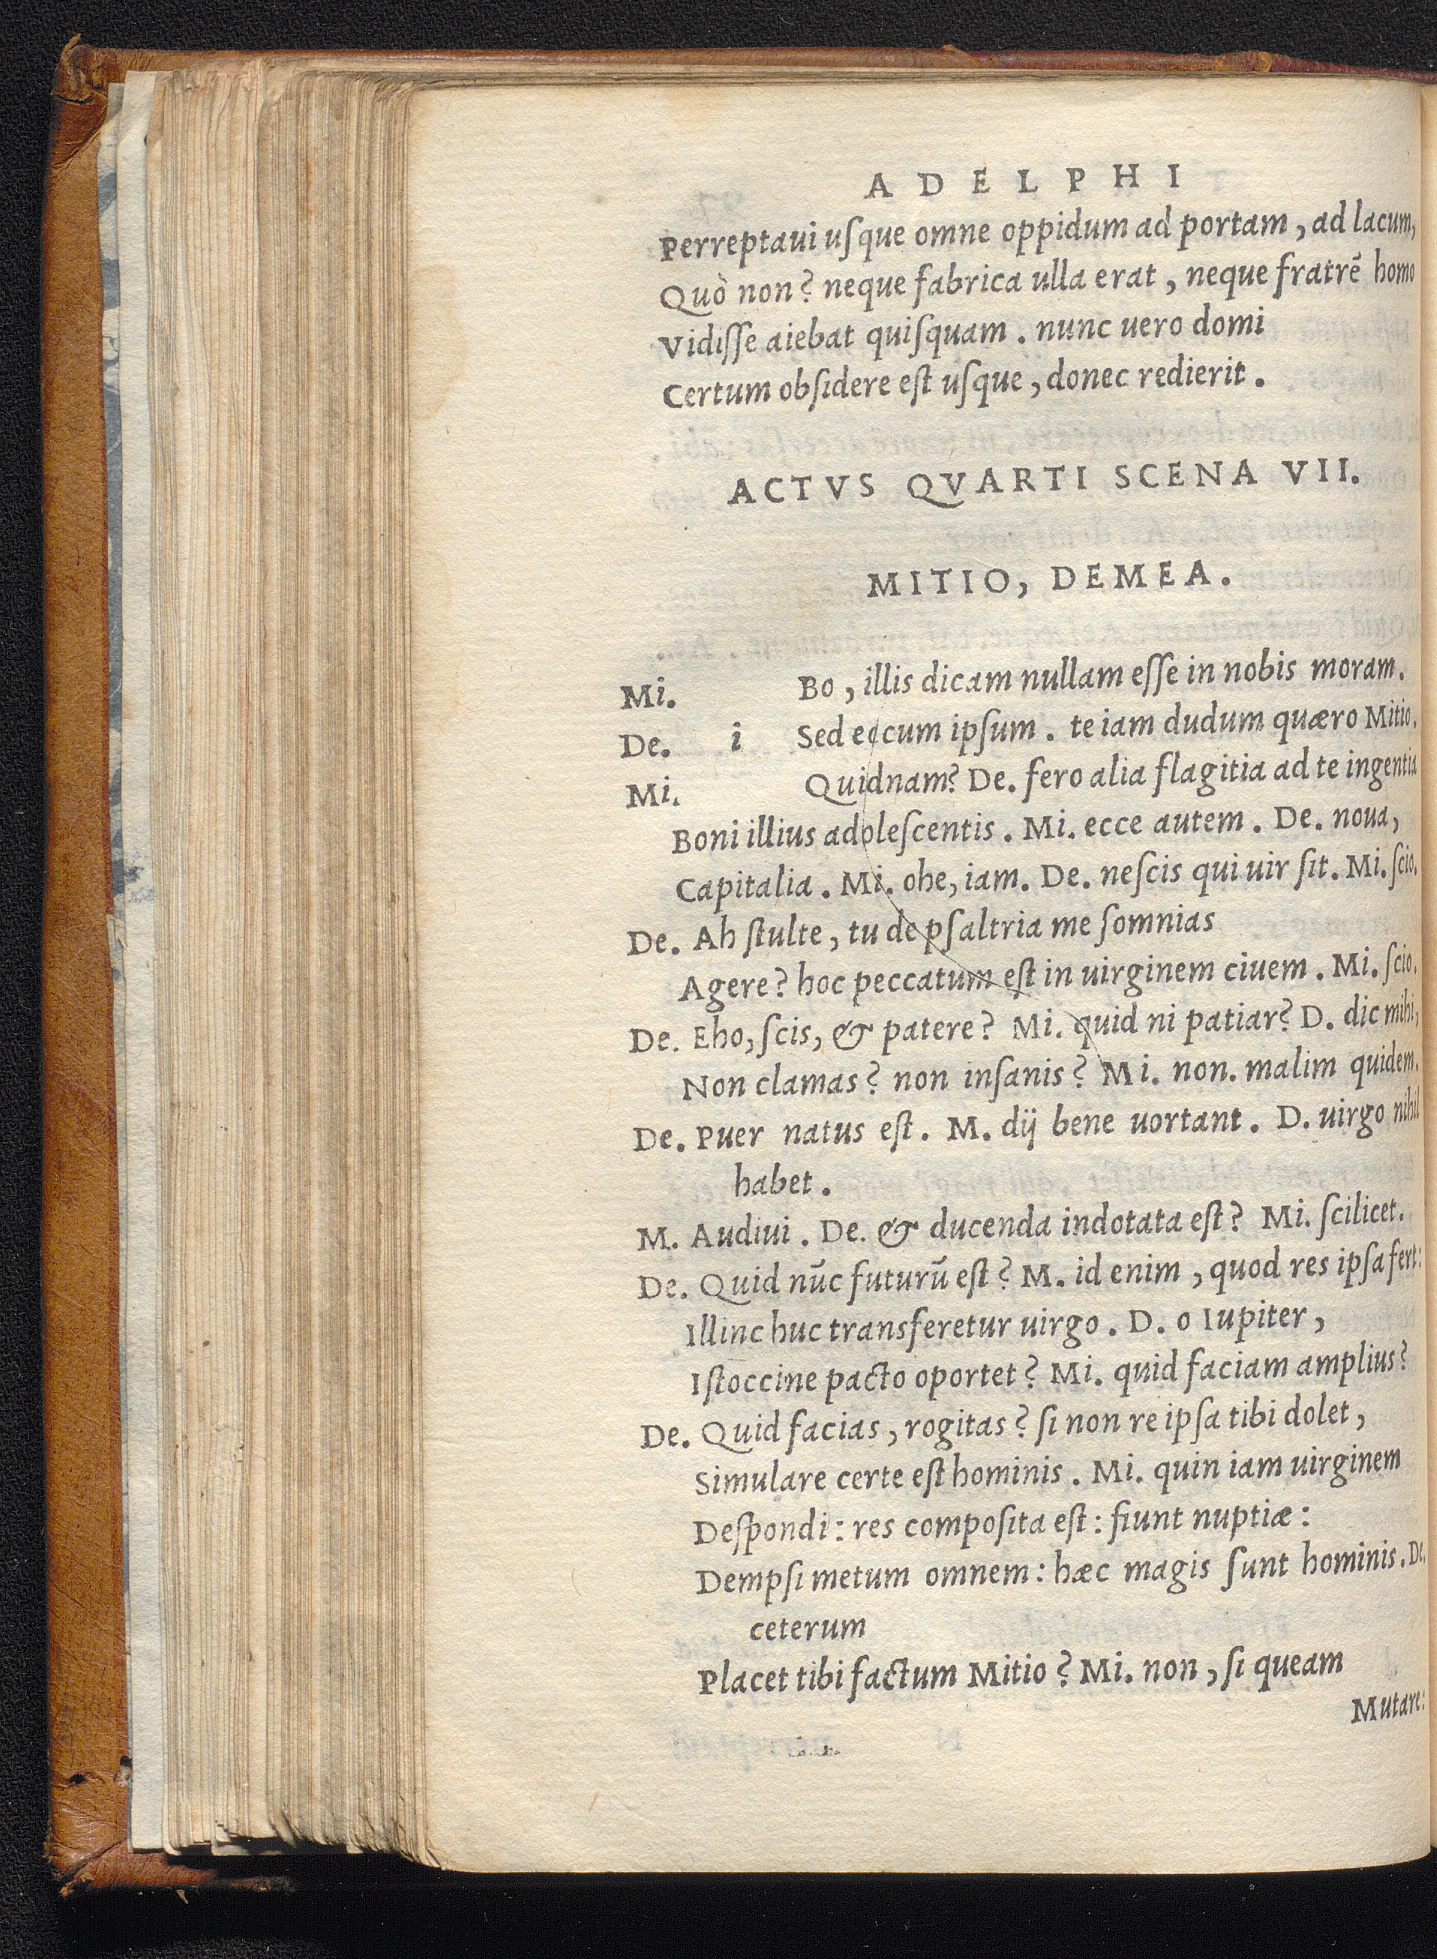 ADELPHI
Perreptaui uſque omne oppidum ad portam, ad lacum,
Quò non? neque fabrica ulla erat, neque fratrē homo
Vidiſſe aiebat quiſquam. nunc uero domi
Certum obſidere eſt uſque, donec redierit.
ACTVS QVARTI SCENA VII.
MITIO, DEMEA.
Mi. Bo, illis dicam nullam eſſe in nobis moram.
De. i Sed eccum ipſum. te iam dudum quæro Mitio.
Mi. Quidnam? De. fero alia flagitia ad te ingentia
Boni illius adoleſcentis. Mi. ecce autem. De. noua,
Capitalia. Mi. ohe, iam. De. neſcis qui uir ſit. Mi. ſcio.
De. Ah ſtulte, tu de pſaltria me ſomnias
Agere? hoc peccatum eſt in uirginem ciuem. Mi. ſcio.
De. Eho, ſcis, & patere? Mi. quid ni patiar? D. dic mihi,
Non clamas? non inſanis? Mi. non. malim quidem.
De. Puer natus eſt. M. dij bene uortant. D. uirgo nihil
habet.
M. Audiui. De. & ducenda indotata eſt? Mi. ſcilicet.
De. Quid nūc futurū eſt? M. id enim, quod res ipſa fert:
Illinc huc transferetur uirgo. D. o Iupiter,
Iſtoccine pacto oportet? Mi. quid faciam amplius?
De. Quid facias, rogitas? ſi non re ipſa tibi dolet,
Simulare certe eſt hominis. Mi. quin iam uirginem
Deſpondi: res compoſita eſt: fiunt nuptiæ:
Dempſi metum omnem: hæc magis ſunt hominis. De.
ceterum
Placet tibi factum Mitio? Mi. non, ſi queam
Mutare: